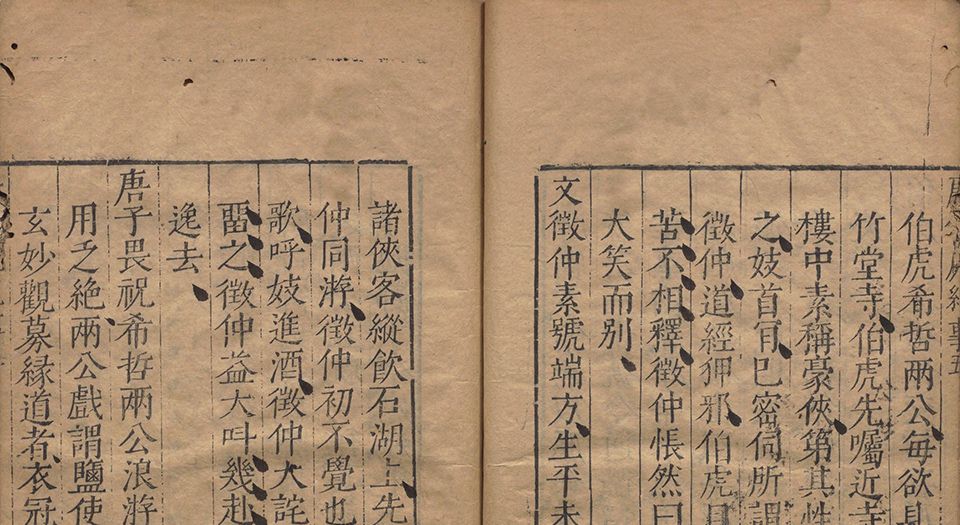 伯虎希哲兩公每欲
竹堂寺、伯虎先囑近寺
樓中素稱豪俠、第其性
之、妓首肎、已密伺所謂
徵仲、道經狎邪、伯虎
苦不相釋、徵仲悵然曰
大笑而別、
文徵仲素號端方、生平未
諸俠客縱飲石湖上、先
仲同游、徵仲初不覺也
歌、呼妓進酒、徵仲大詫
畱之、徵仲益大叫、幾赴
逸去、
唐子畏祝希哲兩公浪游
用乏絶、兩公戲謂鹽使
玄妙觀募緣道者、衣冠